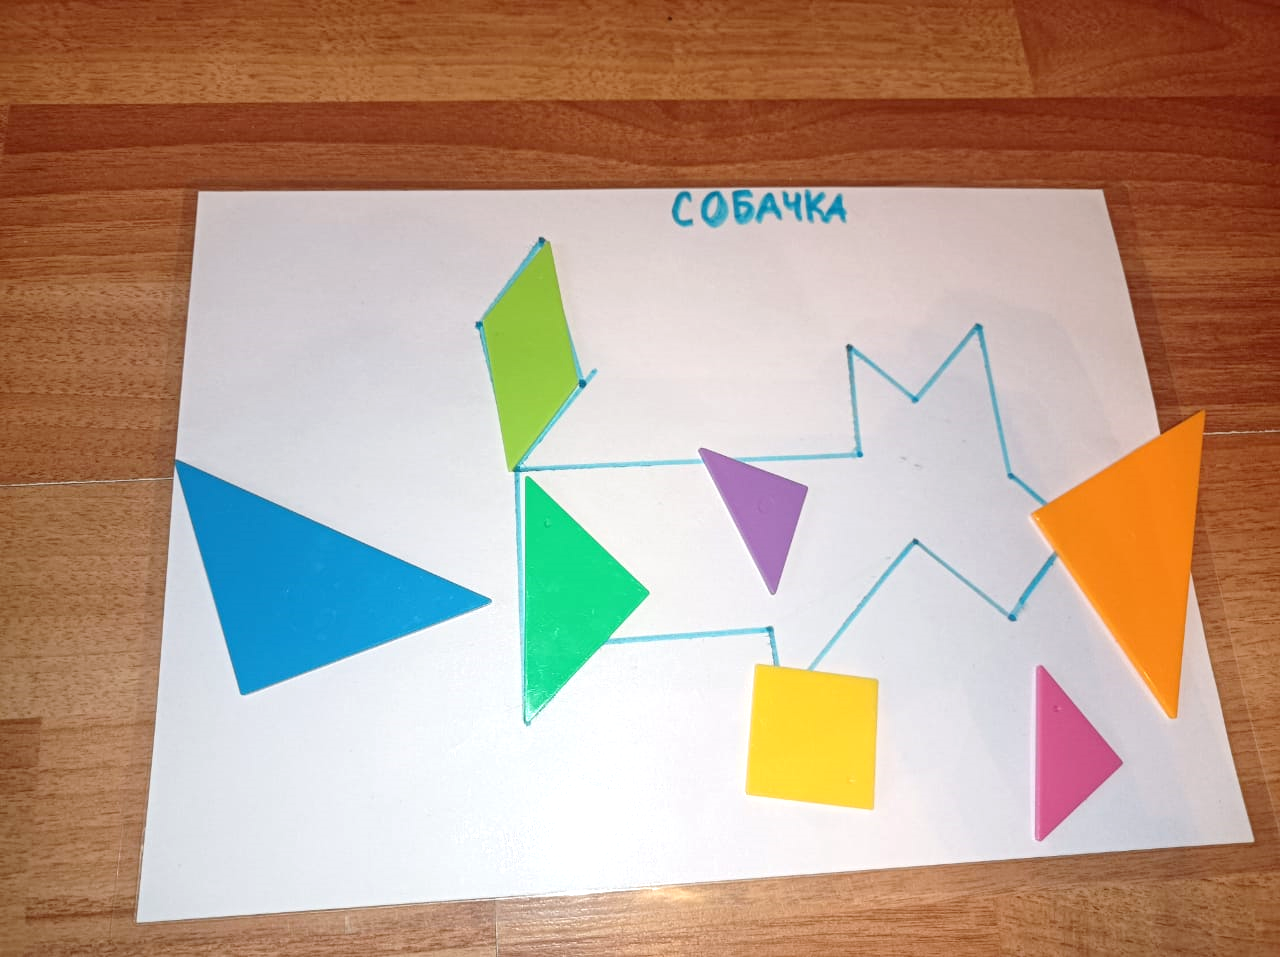 СОБАЧКА